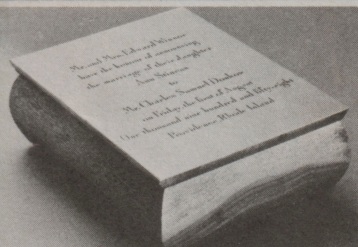 Mr. and Mrs. Edward Winner
have the honour of announcing
the marriage of their daughter
Ann
to
Mr. Charles Samuel
on Friday, the first of August
One thousand nine hundred and fifty-eight
Providence, Rhode Island